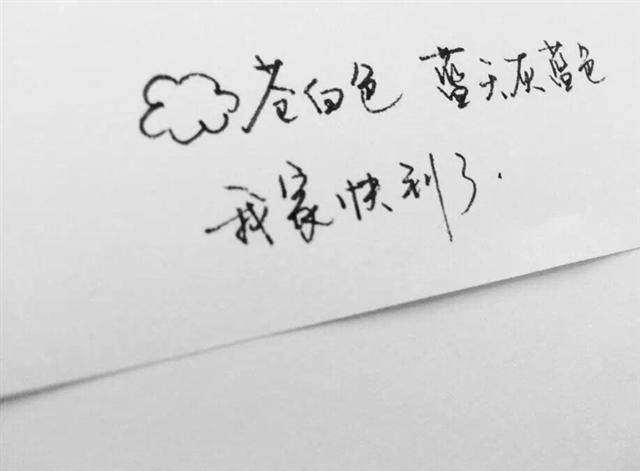 苍白色 蓝天灰蓝色
我家快到了.